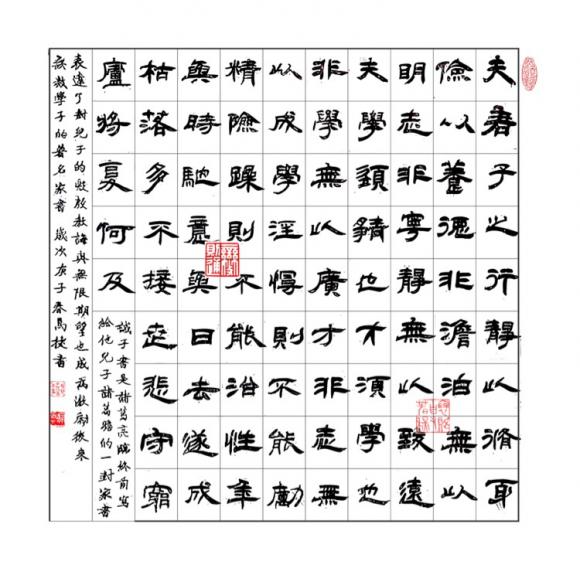 夫君子之行靜以脩身
儉以養德非澹泊無以
明志非寧靜無以致遠
夫學須靜也才須學也
非學無以廣才非志無
以成學淫慢則不能勵
精險躁則不能治性年
與時馳意與日去遂成
枯落多不接世悲守窮
廬將復何及
誡子書是諸葛亮臨終前寫
給他兒子諸葛瞻的一封家書
表達了對兒子的殷殷教誨與無限期望也成為激勵後來
無數學子的著名家書 歲次庚子春馬捷書